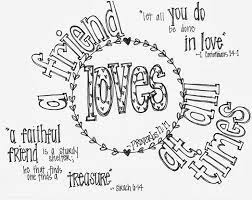 a friend
loves
at all
times
Proverbs 17:17
"let all you do
be done
in love"
Corinthians
"a faithful
friend is a sturdy
shelter;
he that finds
one finds a
treasure"
- Sirach 6:14